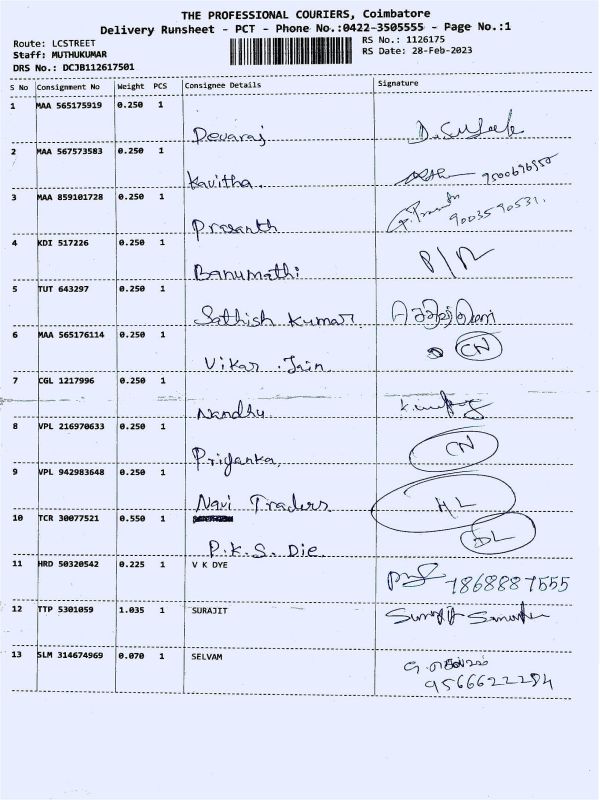 THE PROFESSIONAL COURIERS, Coimbatore
Delivery Runsheet - PCT - Phone No.:0422-3505555 - Page No.:1
Route: LCSTREET RS No.: 1126175
Staff: MUTHUKUMAR RS Date: 28-Feb-2023
DRS No.: DCJB112617501
S No Consignment No Weight PCS Consignee Details Signature
1 MAA 565175919 0.250 1
Devaraj
2 MAA 567573583 0.250 1
Kavitha.
3 MAA 859101728 0.250 1
Prasanth 9003590531.
4 KDI 517226 0.250 1
Banumathi
5 TUT 643297 0.250 1
Sathish Kumar
6 MAA 565176114 0.250 1
Vikas Jain CN
7 CGL 1217996 0.250 1
Nandhu
8 VPL 216970633 0.250 1
Priyanka CN
9 VPL 942983648 0.250 1
Navi Traders HL
10 TCR 30077521 0.550 1
P.K.S. Die. DL
11 HRD 50320542 0.225 1 V K DYE
7868887555
12 TTP 5301059 1.035 1 SURAJIT
13 SLM 314674969 0.070 1 SELVAM
9566622284